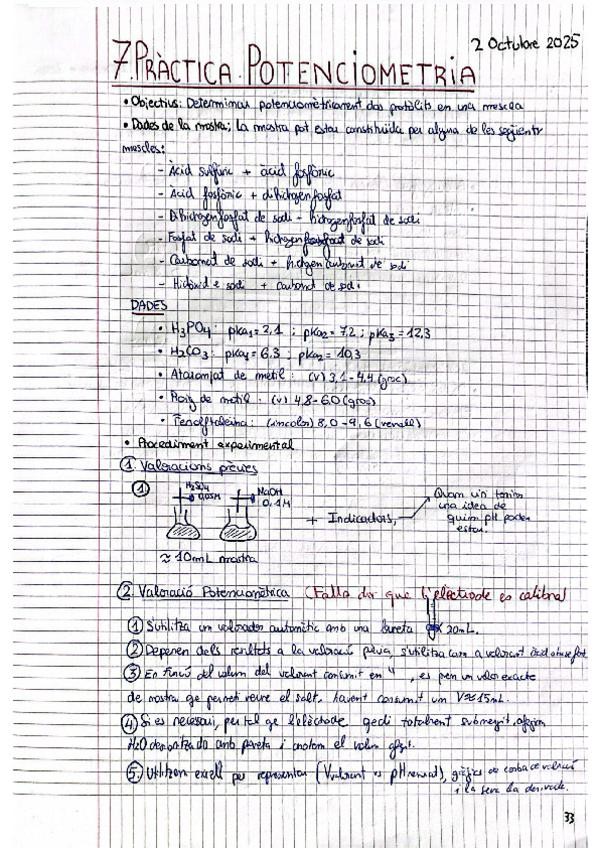 2 Octubre 2025
7. PRÀCTICA. POTENCIOMETRIA
• Objectius: Determinar potenciomètricament dos protòlits en una mescla
• Dades de la mostra: La mostra pot estar constituida per alguna de les següents
mescles:
- Àcid sulfúric + àcid fosfòric
- Àcid fosfòric + dihidrogenfosfat
- Dihidrogenfosfat de sodi - hidrogenfosfat de sodi
- Fosfat de sodi + hidrogenfosfat de sodi
- Carbonat de sodi + hidrogencarbonat de sodi
- Hidròxid de sodi + Carbonat de sodi
DADES
• H3PO4: pKa1 = 2,1 ; pKa2 = 7,2 ; pKa3 = 12,3
• H2CO3: pKa1 = 6.3 ; pKa2 = 10,3
• Ataronjat de metil: (v) 3,1-4,4 (groc)
• Roig de metil: (v) 4,8-6,0 (groc)
• Fenolftaleina: (incolor) 8,0-9,6 (vermell)
• Procediment experimental
1. Valoracions prèves
1 H2SO4 0,05M NaOH 0,1M
+ Indicadors, Quan un tenim una idea de quin pH poden estar.
≈ 10mL mostra
2. Valoració Potenciomètrica (Falla dir que l'electrode es calibra)
1 S'utilitza un valorador automàtic amb una bureta 20mL.
2 Depenen dels resultats a la valoració prèva s'utilitza com a valorant
3 En funció del volum del valorant consumit en , es pren un valor exacte
de mostra que permeti veure el salt, havent consumit un V≈15mL.
4 Si es necesari, per tal que l'elèctrode quedi totalment submergit, afegim
H2O desionitzada amb pipeta i anotem el volum afegit.
5 Utilitzem excel per representar (Vvalorant vs pH), gràfics de corba de valoració
i la seva 1a derivada.
33